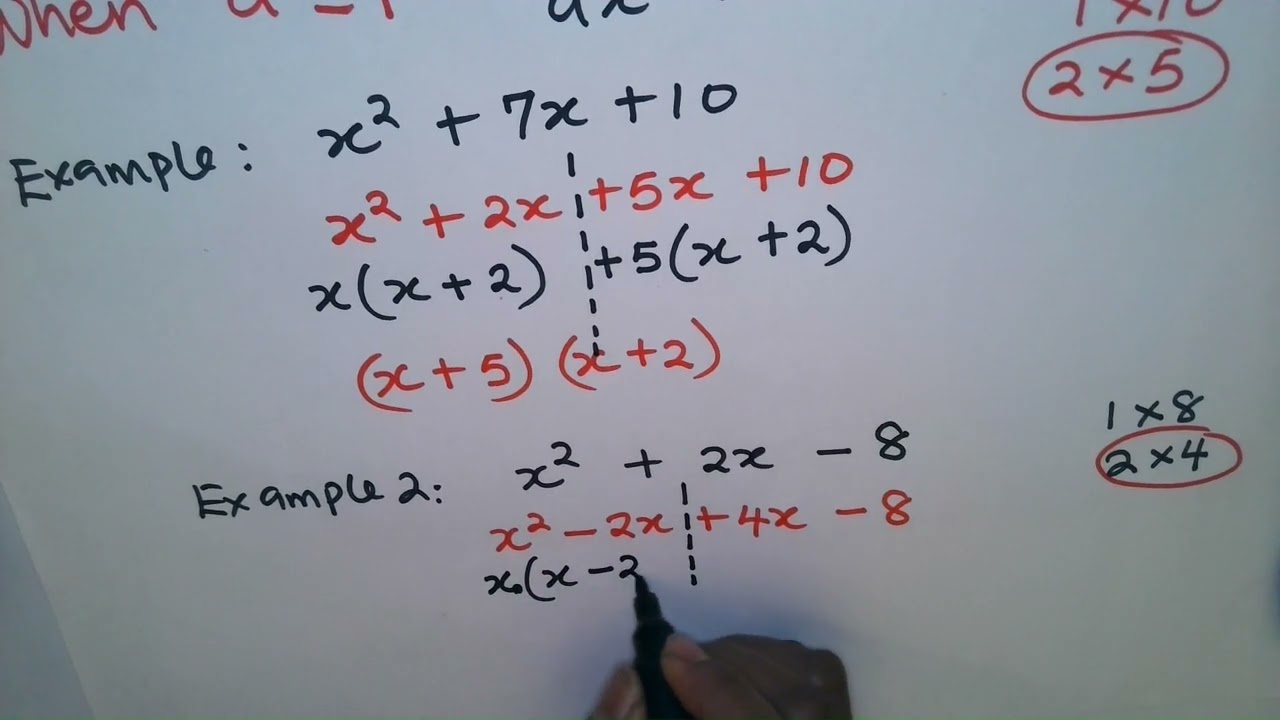 When a = 1 ax²
1 × 10
2 × 5
Example: x² + 7x + 10
x² + 2x + 5x + 10
x(x + 2) + 5(x + 2)
(x + 5) (x + 2)
1 × 8
2 × 4
Example 2: x² + 2x - 8
x² - 2x + 4x - 8
x(x - 2